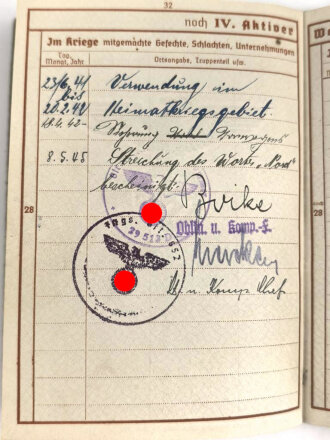 32
noch IV. Aktiver
Im Kriege mitgemachte Gefechte, Schlachten, Unternehmungen
Tag, Monat, Jahr
Ortsangabe, Truppenteil usw.
23/6.41 Verwendung im
bis
20.2.42 Heimatkriegsgebiet.
18.4.42-
8.5.45 Streichung des Wortes „Nord"
bescheinigt:
28
29512
Oblt. u. Komp.-F.
Lt. u. Komp. Chef
28